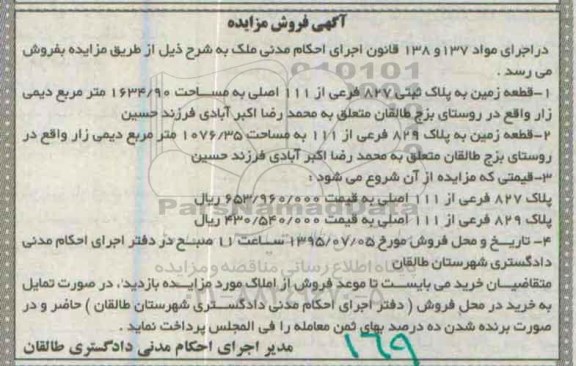 آگهی فروش مزایده
دراجرای مواد ۱۳۷و ۱۳۸ قانون اجرای احکام مدنی ملک به شرح ذیل از طریق مزایده بفروش
می رسد .
۱-قطعه زمین به پلاک ثبتی ۸۲۷ فرعی از ۱۱۱ اصلی به مساحت ۱۶۳۴/۹۰ متر مربع دیمی
زار واقع در روستای بزج طالقان متعلق به محمد رضا اکبر آبادی فرزند حسین
۲-قطعه زمین به پلاک ۸۲۹ فرعی از ۱۱۱ به مساحت ۱۰۷۶/۳۵ متر مربع دیمی زار واقع در
روستای بزج طالقان متعلق به محمد رضا اکبر آبادی فرزند حسین
۳-قیمتی که مزایده از آن شروع می شود :
پلاک ۸۲۷ فرعی از ۱۱۱ اصلی به قیمت ۶۵۳/۹۶۰/۰۰۰ ریال
پلاک ۸۲۹ فرعی از ۱۱۱ اصلی به قیمت ۴۳۰/۵۴۰/۰۰۰ ریال
۴- تاریخ و محل فروش مورخ ۱۳۹۵/۰۷/۰۵ ساعت ۱۱ صبح در دفتر اجرای احکام مدنی
دادگستری شهرستان طالقان
متقاضیان خرید می بایست تا موعد فروش از املاک مورد مزایده بازدید، در صورت تمایل
به خرید در محل فروش ( دفتر اجرای احکام مدنی دادگستری شهرستان طالقان ) حاضر و در
صورت برنده شدن ده درصد بهای ثمن معامله را فی المجلس پرداخت نماید .
مدیر اجرای احکام مدنی دادگستری طالقان
۱۶۹
ParsNamadData
پایگاه اطلاع رسانی مناقصه و مزایده